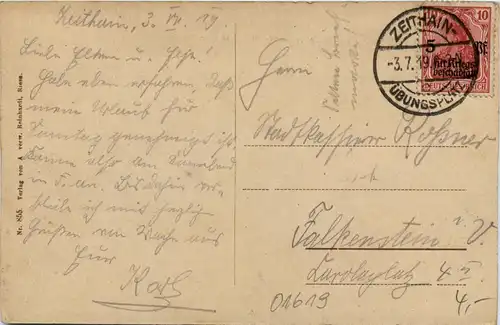 Zeithain, 3. VII. 19
Liebe Eltern u. Helje!
Habe eben erfahren, daß
mein Urlaub für
Sonntag genehmigt ist.
Komme also am Sonnabend
in F. an. Bis dahin ver-
bleibe ich mit herzlich
Grüßen von Wache aus
Euer
Karl
Nr. 855 Verlag von A verw. Reinhardt, Riesa.
Herrn
Stadtkassierer Roßner
Falkenstein i. V.
Carolaplatz 4 II
01619
4,-
ZEITHAIN-
-3.7.19
ÜBUNGSPLATZ
10
5 Pf
für Kriegs-
beschädigte